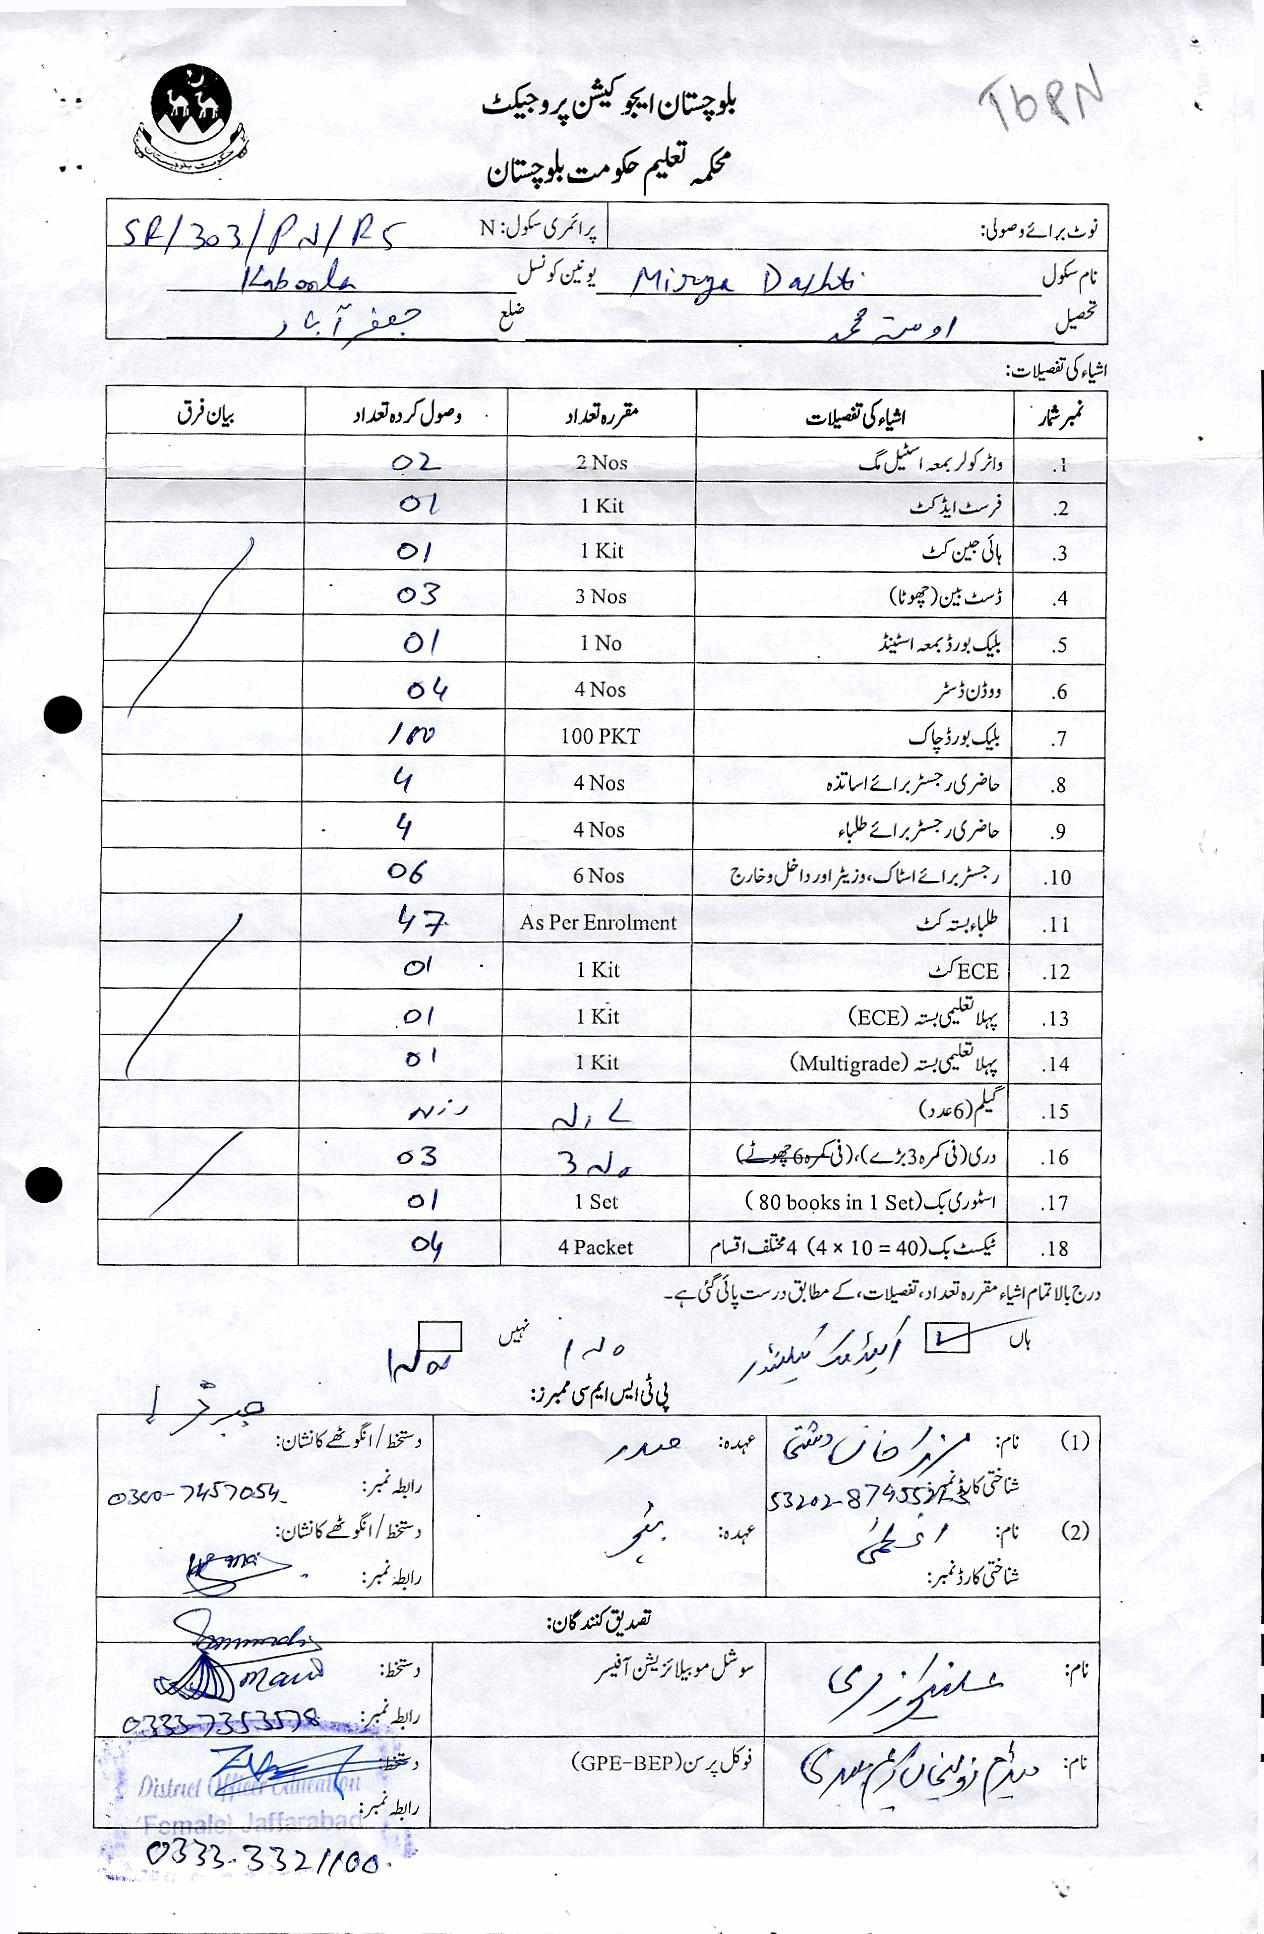 TbPN
بلوچستان ایجوکیشن پروجیکٹ
محکمہ تعلیم حکومت بلوچستان
حکومت بلوچستان
نوٹ برائے وصولی: پرائمری سکول: N SR/303/PN/RS
نام سکول Mirza Dashti یونین کونسل Kaboola
تحصیل اوستہ محمد ضلع جعفر آباد
اشیاء کی تفصیلات:
نمبر شمار اشیاء کی تفصیلات مقررہ تعداد وصول کردہ تعداد بیان فرق
1. واٹر کولر بمعہ اسٹیل مگ 2 Nos 02
2. فرسٹ ایڈ کٹ 1 Kit 01
3. ہائی جین کٹ 1 Kit 01
4. ڈسٹ بین (چھوٹا) 3 Nos 03
5. بلیک بورڈ بمعہ اسٹینڈ 1 No 01
6. ووڈن ڈسٹر 4 Nos 04
7. بلیک بورڈ چاک 100 PKT 100
8. حاضری رجسٹر برائے اساتذہ 4 Nos 4
9. حاضری رجسٹر برائے طلباء 4 Nos 4
10. رجسٹر برائے اسٹاک، وزیٹر اور داخل و خارج 6 Nos 06
11. طلباء بستہ کٹ As Per Enrolment 47
12. ECE کٹ 1 Kit 01
13. پہلا تعلیمی بستہ (ECE) 1 Kit 01
14. پہلا تعلیمی بستہ (Multigrade) 1 Kit 01
15. گیلم (6 عدد)
16. دری (فی کمرہ 3 بڑے)، (فی کمرہ 6 چھوٹے) 3 No 03
17. اسٹوری بک (80 books in 1 Set) 1 Set 01
18. ٹیکسٹ بک (4 × 10 = 40) 4 مختلف اقسام 4 Packet 04
درج بالا تمام اشیاء مقررہ تعداد، تفصیلات، کے مطابق درست پائی گئی ہے۔
ہاں اکیڈمک کیلینڈر نہیں
پی ٹی ایس ایم سی ممبرز:
(1) نام: مرزا خان دشتی عہدہ: صدر دستخط/انگوٹھے کا نشان:
شناختی کارڈ نمبر: رابطہ نمبر: 0300-7457054
(2) نام: عہدہ: ٹیچر دستخط/انگوٹھے کا نشان:
شناختی کارڈ نمبر: رابطہ نمبر:
تصدیق کنندگان:
نام: سوشل موبیلائزیشن آفیسر دستخط:
رابطہ نمبر: 0333-7353578
نام: فوکل پرسن (GPE-BEP) دستخط:
رابطہ نمبر:
District Officer Education
(Female) Jaffarabad
0333-3321100